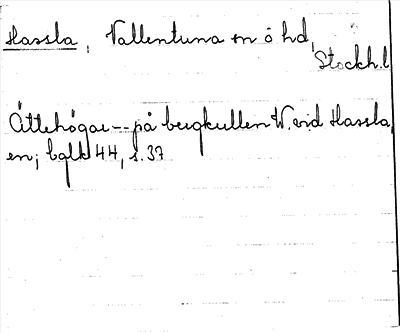 Hassla, Vallentuna en o hd,
Stockh. l
Ättehögar -- på bergkullen W. vid Hassla,
en; bglk 44, s. 37